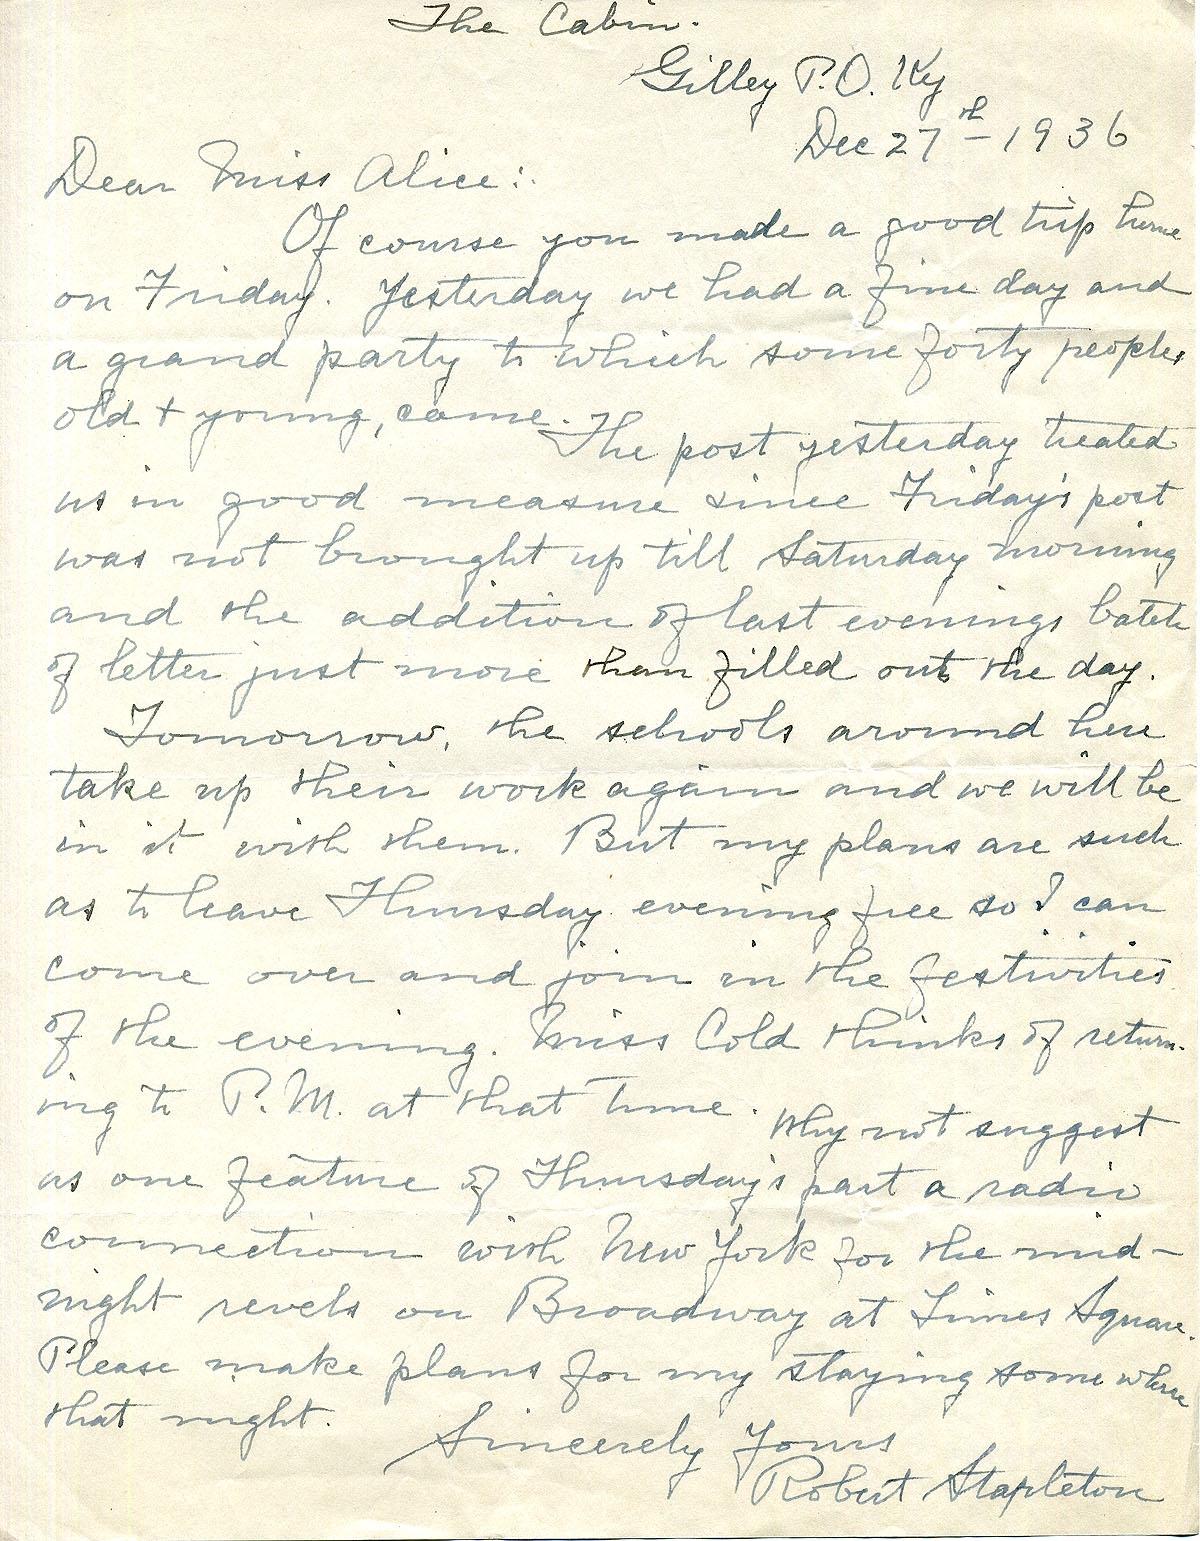 The Cabin.
Gilley P.O. Ky
Dec 27th - 1936
Dear Miss Alice:
Of course you made a good trip home
on Friday. Yesterday we had a fine day and
a grand party to which some forty people,
old + young, came.
The post yesterday treated
us in good measure since Friday's post
was not brought up till Saturday morning
and the addition of last evenings batch
of letter just more than filled out the day.
Tomorrow, the schools around here
take up their work again and we will be
in it with them. But my plans are such
as to leave Thursday evening free so I can
come over and join in the festivities
of the evening. Miss Cold thinks of return-
ing to P.M. at that time.
Why not suggest
as one feature of Thursday's part a radio
connection with New York for the mid-
night revels on Broadway at Times Square.
Please make plans for my staying some where
that night.
Sincerely Yours
Robert Stapleton